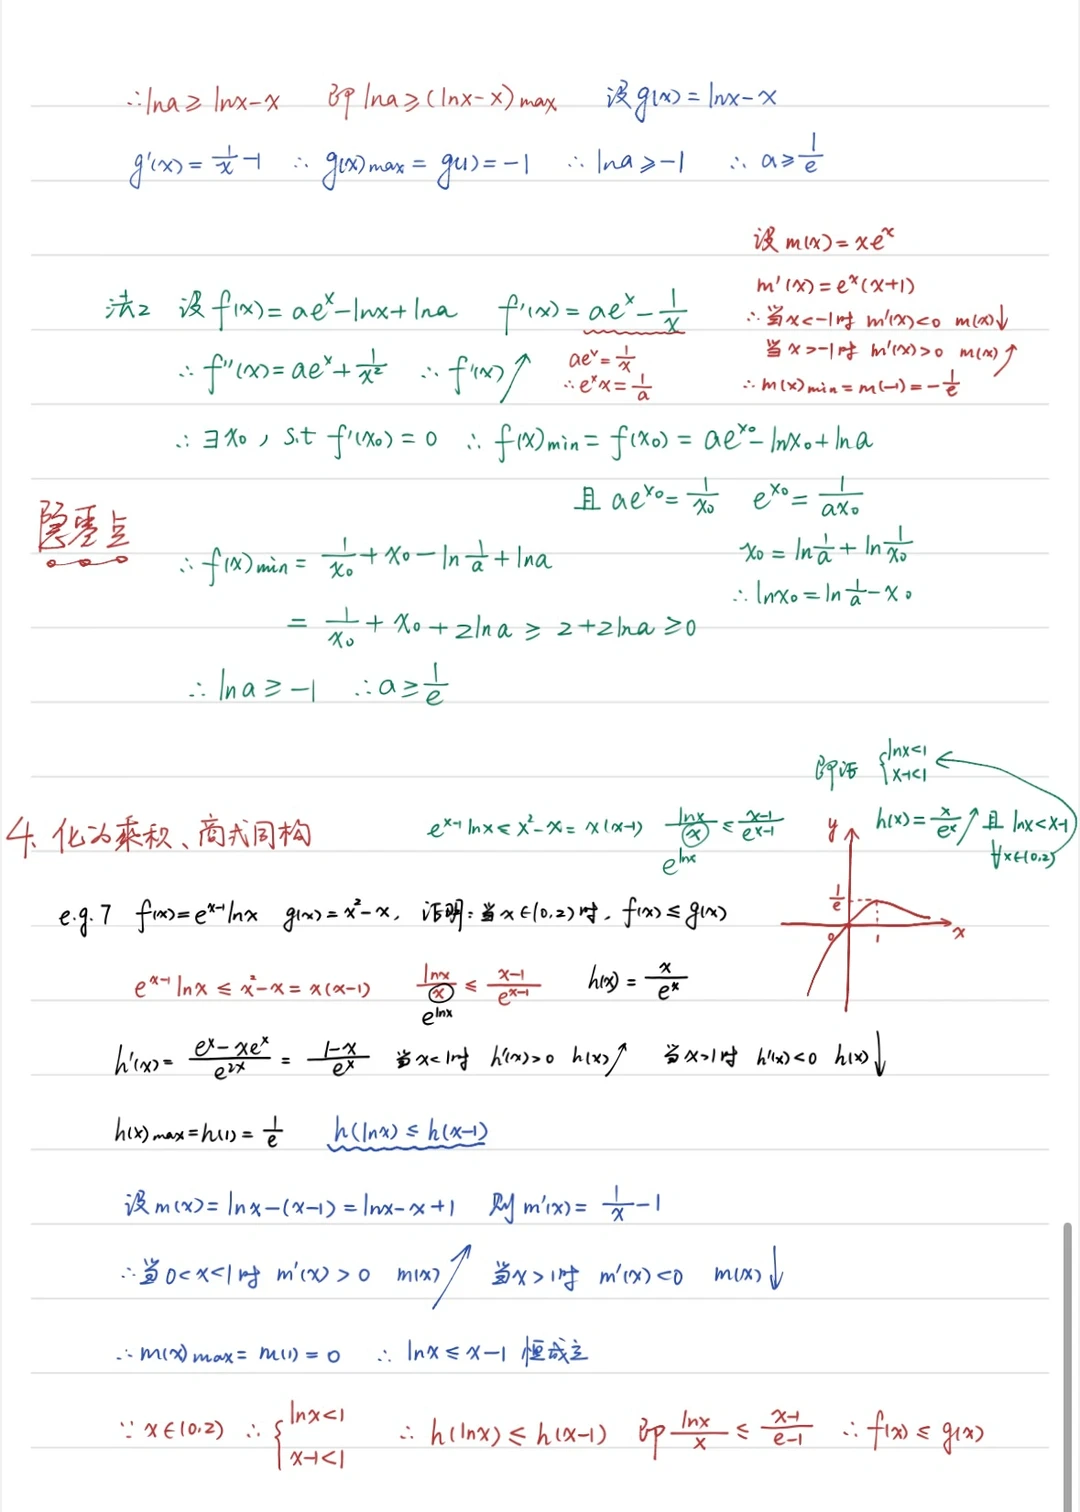 ∴lna≥lnx-x 即lna≥(lnx-x)max 设g(x)=lnx-x
g'(x)=1/x-1 ∴g(x)max=g(1)=-1 ∴lna≥-1 ∴a≥1/e
设m(x)=xe^x
m'(x)=e^x(x+1)
∴当x<-1时 m'(x)<0 m(x)↓
当x>-1时 m'(x)>0 m(x)↗
∴m(x)min=m(-1)=-1/e
法2 设f(x)=ae^x-lnx+lna f'(x)=ae^x-1/x
∴f''(x)=ae^x+1/x² ∴f'(x)↗
ae^x=1/x
∴e^x x=1/a
∴∃x₀, s.t f'(x₀)=0 ∴f(x)min=f(x₀)=ae^x₀-lnx₀+lna
且ae^x₀=1/x₀ e^x₀=1/(ax₀)
隐零点
∴f(x)min=1/x₀+x₀-ln1/a+lna
x₀=ln1/a+ln1/x₀
∴lnx₀=ln1/a-x₀
=1/x₀+x₀+2lna≥2+2lna≥0
∴lna≥-1 ∴a≥1/e
即证{lnx<1
x-1<1
4. 化为乘积、商式同构
e^(x-1)lnx≤x²-x=x(x-1) lnx/x≤(x-1)/e^(x-1)
e^lnx
h(x)=x/e^x↗且lnx<x-1
∀x∈(0,2)
y
1/e
0
1
x
e.g.7 f(x)=e^(x-1)lnx g(x)=x²-x, 证明:当x∈(0,2)时, f(x)≤g(x)
e^(x-1)lnx≤x²-x=x(x-1) lnx/x≤(x-1)/e^(x-1) h(x)=x/e^x
e^lnx
h'(x)=(e^x-xe^x)/e^2x=(1-x)/e^x 当x<1时 h'(x)>0 h(x)↗ 当x>1时 h'(x)<0 h(x)↓
h(x)max=h(1)=1/e h(lnx)≤h(x-1)
设m(x)=lnx-(x-1)=lnx-x+1 则m'(x)=1/x-1
∴当0<x<1时 m'(x)>0 m(x)↗ 当x>1时 m'(x)<0 m(x)↓
∴m(x)max=m(1)=0 ∴lnx≤x-1 恒成立
∵x∈(0,2) ∴{lnx<1
x-1<1
∴h(lnx)≤h(x-1) 即lnx/x≤(x-1)/(e-1) ∴f(x)≤g(x)